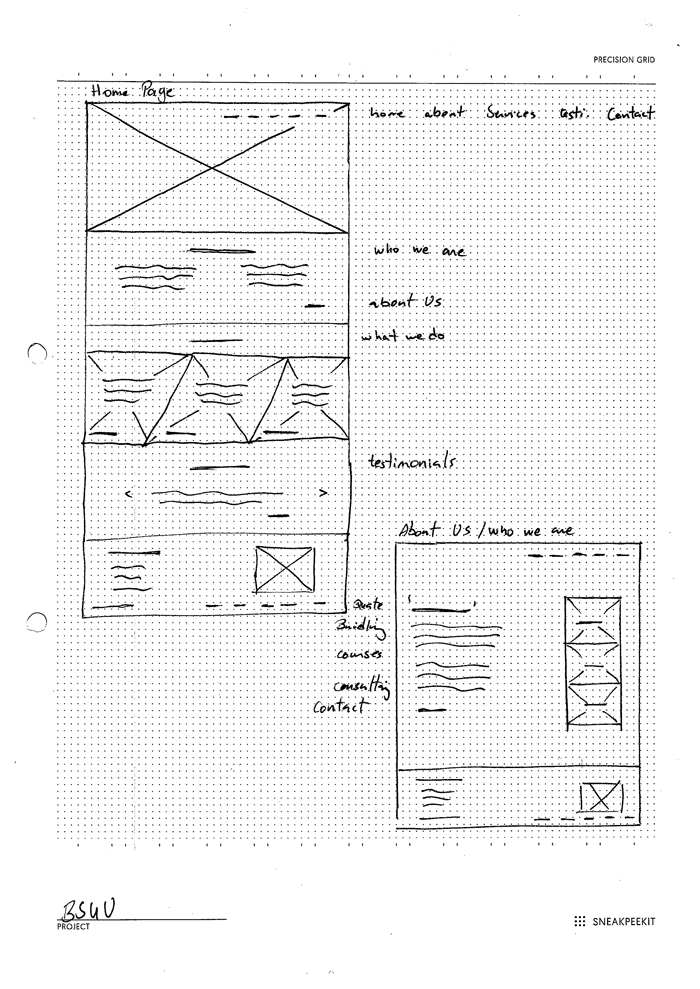 PRECISION GRID
Home Page
home about Services testi. Contact
who we are
about Us
what we do
testimonials
About Us / who we are
Quote
Building
courses
consulting
Contact
BS4U
PROJECT
SNEAKPEEKIT